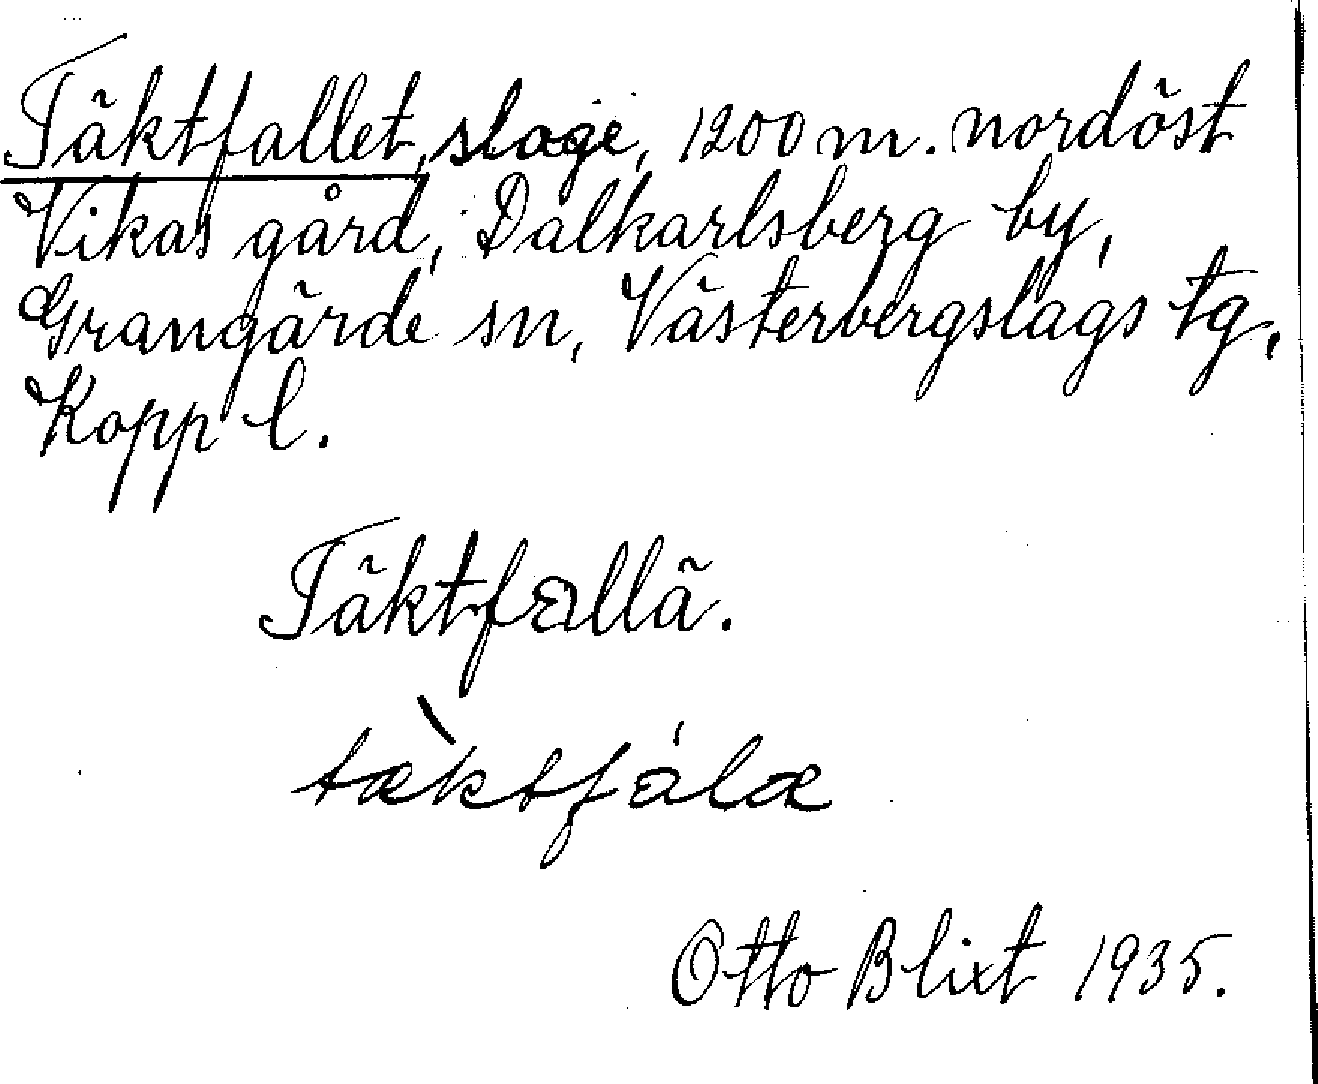 Täktfallet, slage, 1200 m. nordöst
Vikas gård, Dalkarlsberg by,
Grangärde sn, Västerbergslags tg,
Kopp l.
Täktfallä.
tæ̀ktfálæ
Otto Blixt 1935.